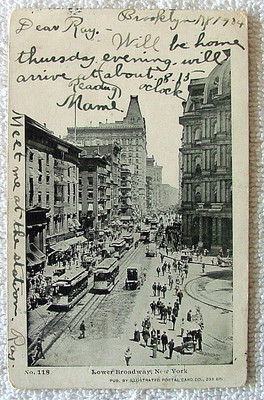 Brooklyn N/
Dear Ray.-
Will be home
thursday evening. will
arrive at about 8.15
Reading o'clock
Mame
Meet me at the station. Ray.
No. 118 Lower Broadway, New York
PUB. BY ILLUSTRATED POSTAL CARD CO.